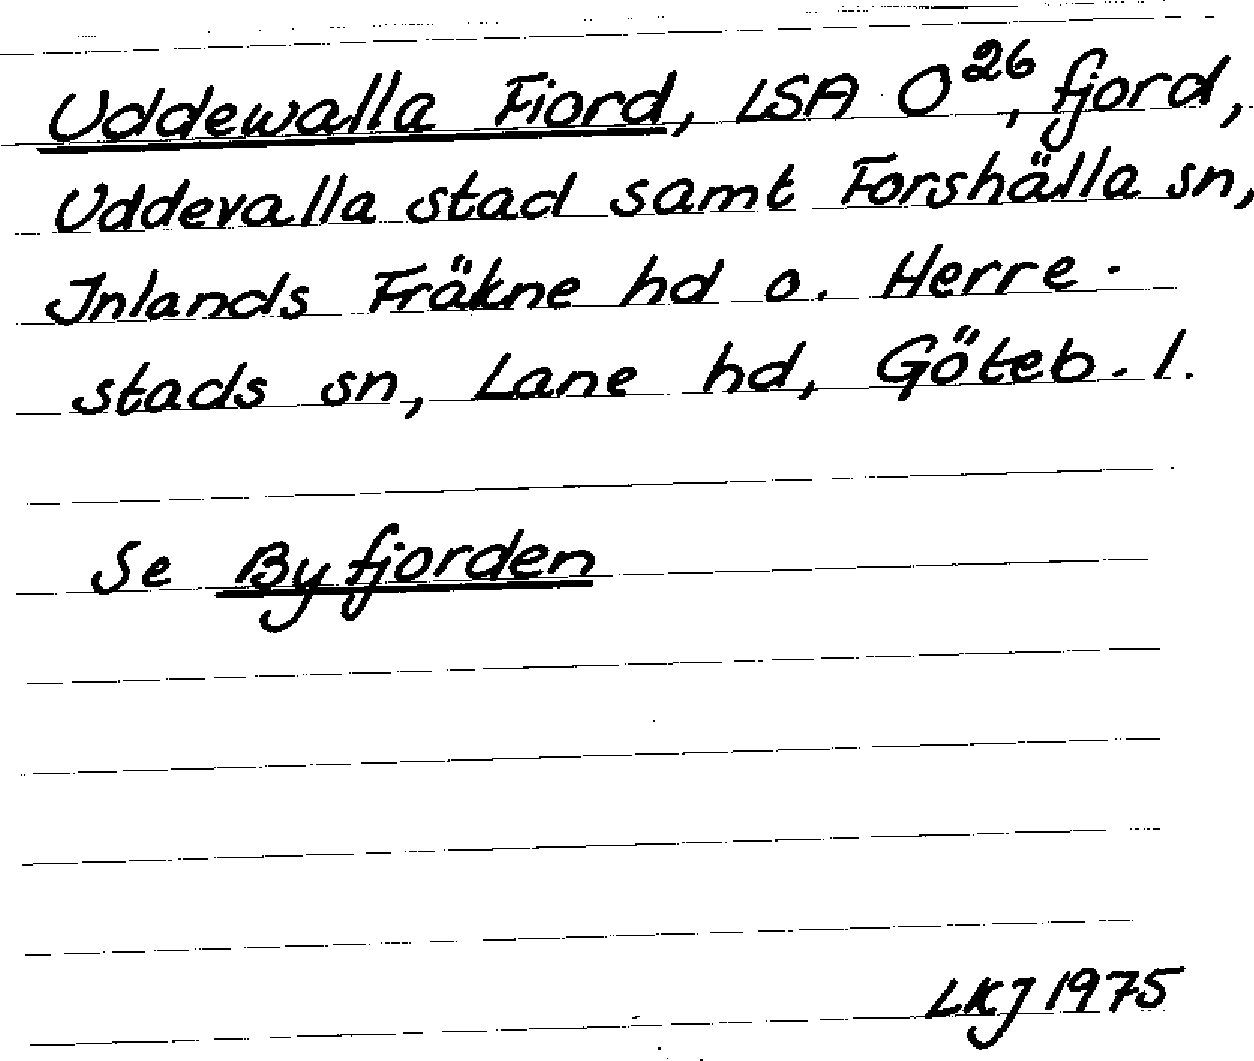 Uddewalla Fiord, LSA O²⁶, fjord,
Uddevalla stad samt Forshälla sn,
Inlands Fräkne hd o. Herre-
stads sn, Lane hd, Göteb. l.
Se Byfjorden
LKJ 1975